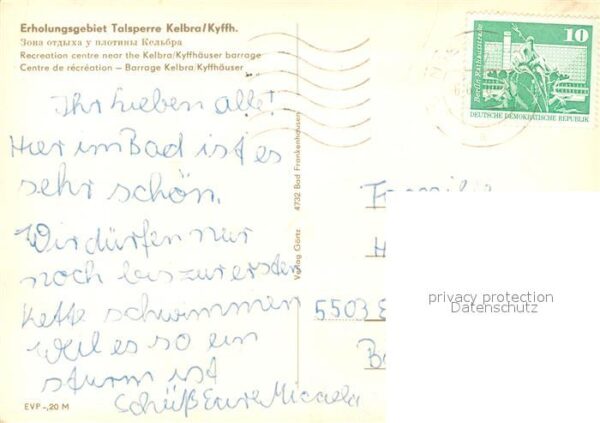 Erholungsgebiet Talsperre Kelbra/Kyffh.
Зона отдыха у плотины Кельбра
Recreation centre near the Kelbra/Kyffhäuser barrage
Centre de récréation – Barrage Kelbra/Kyffhäuser
Ihr lieben alle!
Hier im Bad ist es
sehr schön.
Wir dürfen nur
noch bis zur ersten
Kette schwimmen
weil es so ein
sturm ist
Schüß Eure Micaela
EVP -,20 M
Verlag Görtz 4732 Bad Frankenhausen
10
Berlin-Rathausstraße
DEUTSCHE DEMOKRATISCHE REPUBLIK
Familie
H
5503 E
privacy protection
Datenschutz